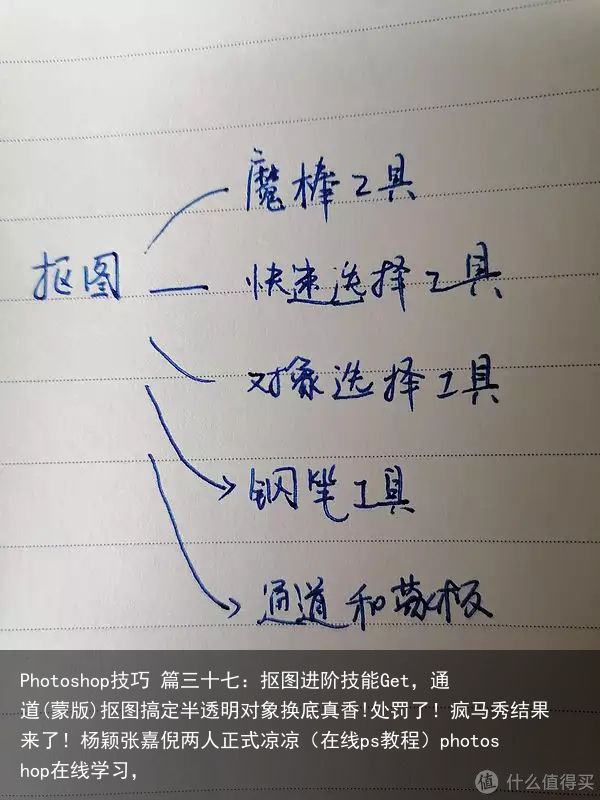 魔棒工具
抠图
快速选择工具
对象选择工具
钢笔工具
通道和蒙板
Photoshop技巧 篇三十七：抠图进阶技能Get，通
道(蒙版)抠图搞定半透明对象换底真香!处罚了！疯马秀结果
来了！杨颖张嘉倪两人正式凉凉（在线ps教程）photos
hop在线学习，
值 什么值得买